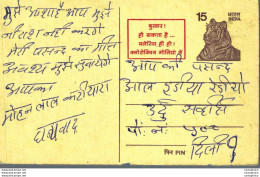 मुझे आशा है आप मुझे
नीराश नहीं करेंगे
मेरी पसन्द का गीत
अवश्य मुझे सुनायेंगे
आपका
मोहन लाल कटीयारा
धन्यवाद
बुखार!
हो सकता है...
मलेरिया ही हो!
क्लोरोक्विन गोलियां लें
15
भारत INDIA
आप की पसन्द
आल इंडीया रेडीयो
उर्दु सर्वीस
पो. बं.
पिन PIN
दिल्ली